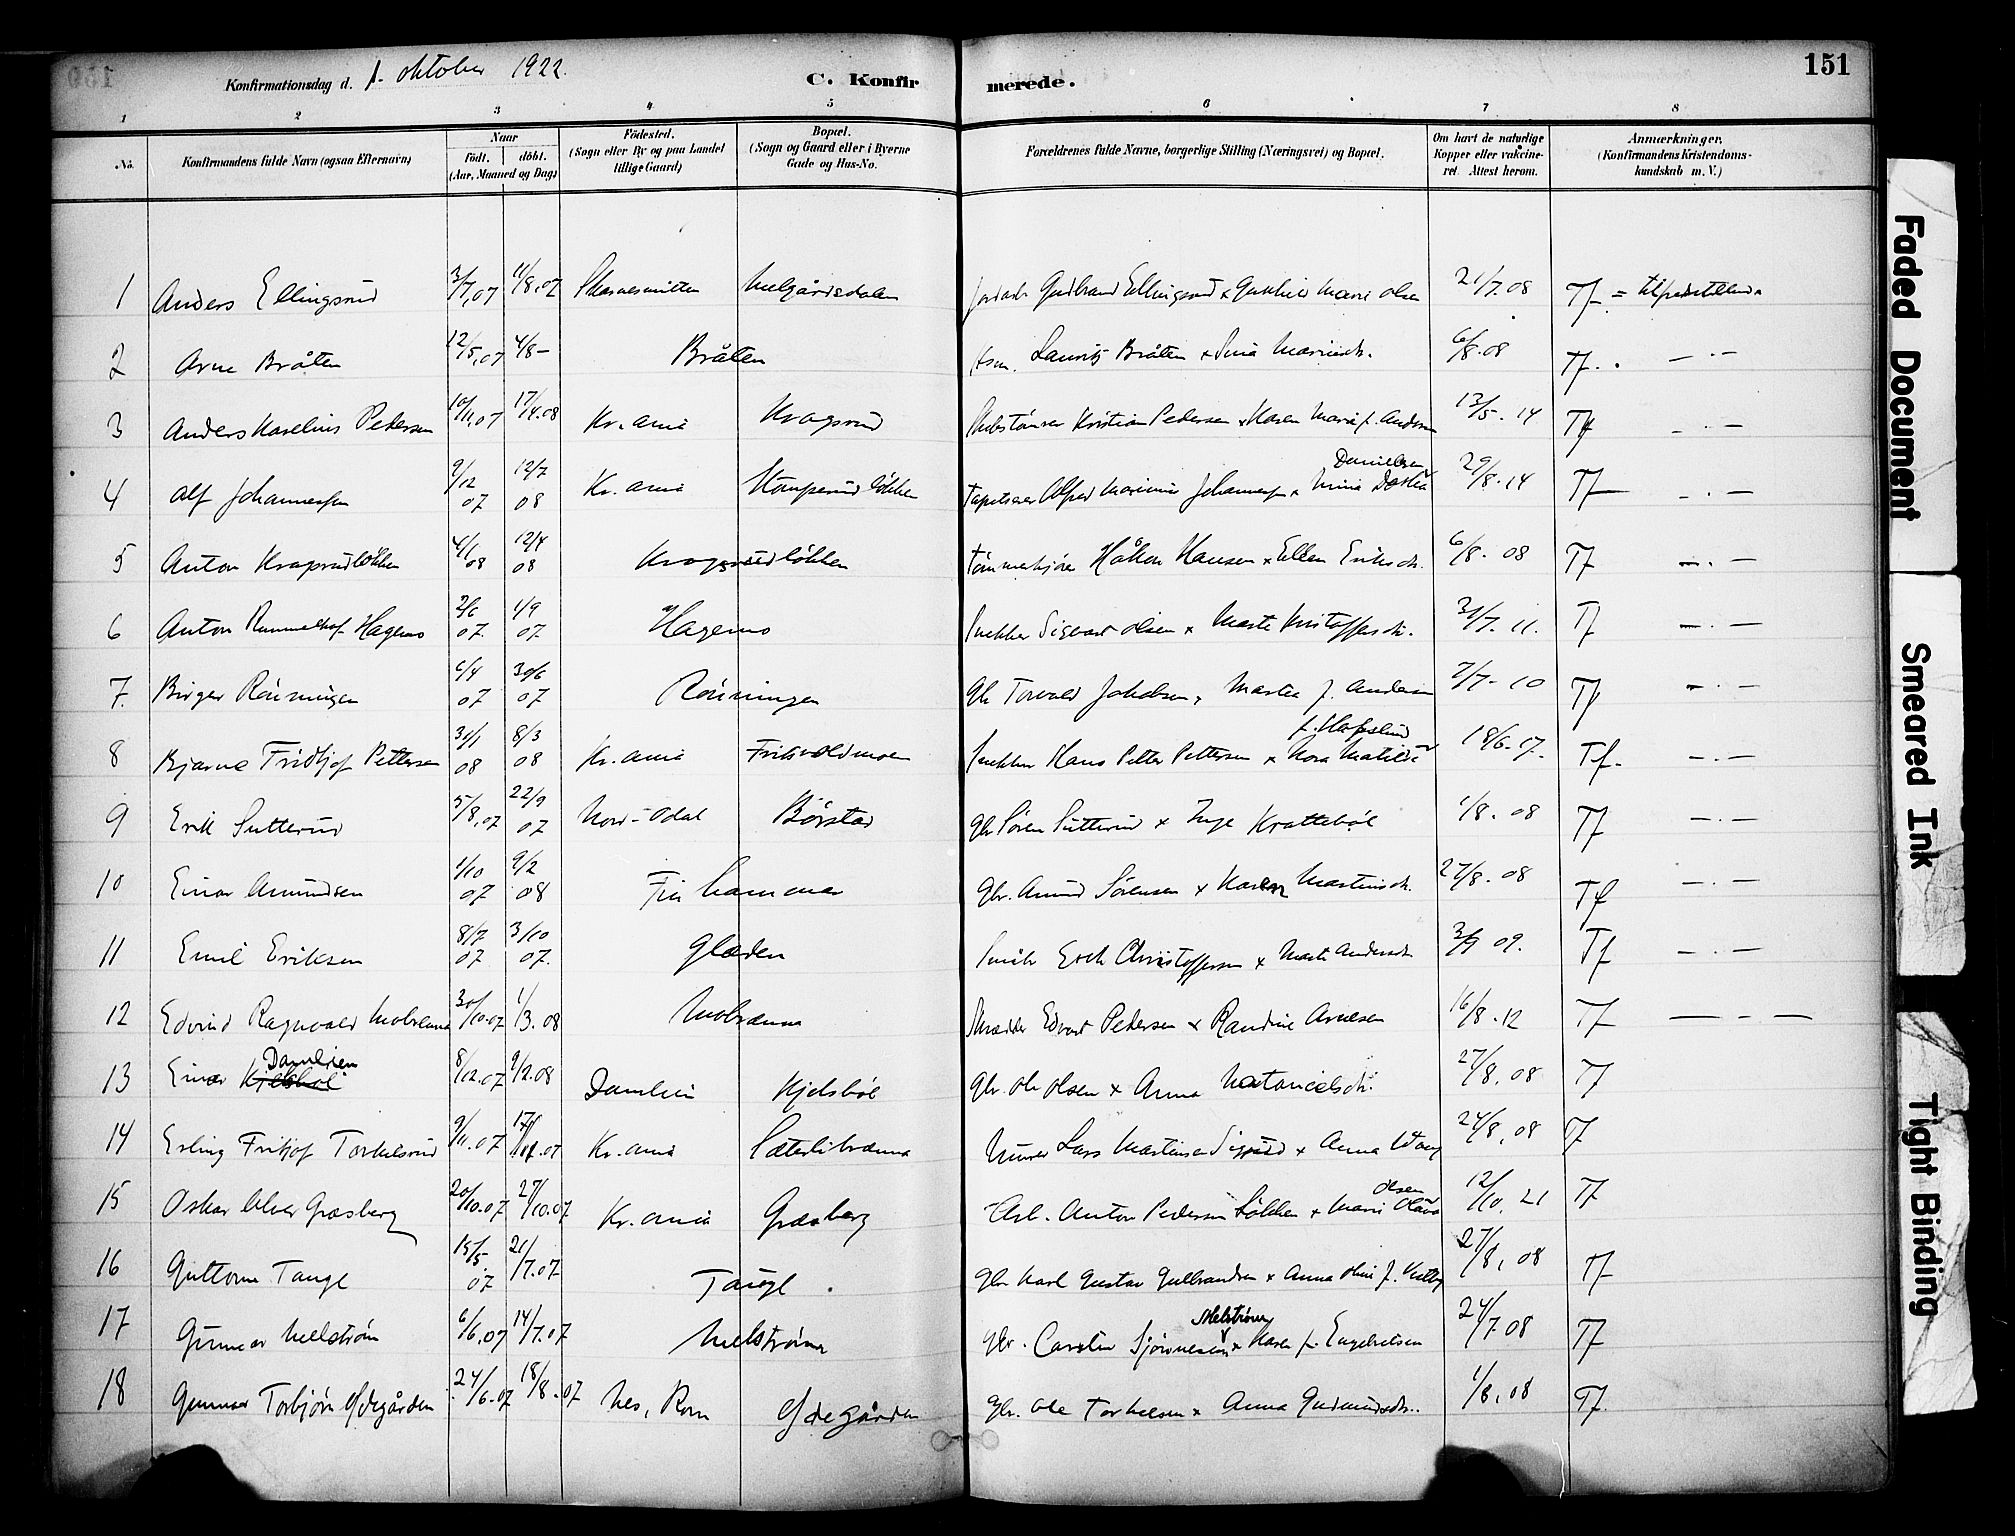 Konfirmationsdag d. 1. oktober 1922. C. Konfirmerede. 151
1 2 3 4 5 6 7 8
No. Konfirmandens fulde Navn (ogsaa Efternavn) Naar födt. döbt. (Aar, Maaned og Dag) Födested. (Sogn eller By og paa Landet tillige Gaard) Bopæl. (Sogn og Gaard eller i Byerne Gade og Hus-No. Forældrenes fulde Navne, borgerlige Stilling (Næringsvei) og Bopæl. Om havt de naturlige Kopper eller vakcineret. Attest herom. Anmærkninger. (Konfirmandens Kristendomskundskab m. V.)
1 Anders Ellingsrud 3/7,07 11/8,07 Gudbrand Ellingsrud x Marie Olsen 21/7.08 Tf
2 Arne Bråten 12/5,07 4/8 — Bråten Lauritz Bråten x 6/8.08 Tf. — . —
3 Anders Karelius Pedersen 10/11,07 17/4.08 Kr.ania Kragsrud Kristian Pedersen x Karen Marie f. Andersen 13/5.14 Tf — . —
4 Alf Johannessen 9/12 07 12/7 08 Kr.ania Alfred Marinius Johannessen x Danielsen 29/8.14 Tf — . —
5 Anton Kragsrudløkken 4/1 08 12/4 08 Kragsrudløkken Håkon Hansen x Ellen Eriksdt. 6/8.08 Tf — . —
6 Anton Hagemo 2/6 07 1/9 07 Hagemo Snekker Sigvart Olsen x Marte Kristoffersdt. 31/7.11. Tf — . —
7. Birger Rønningen 6/4 07 30/6 07 Rønningen Torvald Jakobsen, Martea f. Andersen 2/7-10 Tf — . —
8 Bjarne Fridtjof Pettersen 31/1 08 8/3 08 Kr.ania Snekker Hans Petter Pettersen x Nora Matilde 18/6.17. Tf. — . —
9 Erik Sutterud 5/8,07 22/9 07 Nord-Odal Børstad Gbr Søren Sutterud x Inge Krattebøl 1/8.08 Tf — . —
10 Einar Amundsen 1/10 07 9/2 08 Finhammar Gbr. Amund Sørensen x Karen Martinsdt. 27/8.08 Tf — . —
11 Emil Eriksen 8/7 07 3/10 07. Glæden Erik Christoffersen x Marte Andersdt. 09. Tf — . —
12 Edvind Ragnvald Mobrenna 30/10.07 1/3.08 Mobrenna Edvart Pedersen x Randine Arnesen 16/8.12 Tf — . —
13 Einar Kjelsbøl Damlien 8/12.07 9/2.08 Damlien Kjelsbøl Gbr. Ole Olsen x Anna Natanielsdt. 27/8.08 Tf
14 Erling Fritjof Torkelsrud 9/11.07 Kr.ania Sæterlibrænna Murer Lars Martinsen x Anna 24/8,08 Tf
15 Oskar Græsberg 20/10.07 27/10.07 Kr.ania Græsberg Arb. Anton Pedersen Løkken x Marie Olava Olsen 12/10.21 Tf
16 Guttorm Tangl 15/5. 07 21/7.07 Tangl. Gbr. Karl Gustav Gulbrandsen x Anna Oline f. 27/8,08 Tf
17 Gunnar Melstrøm 6/6,07 14/7.07 Melstrøm Gbr. x Karen f. Engebretsen 24/7.08 Tf
18 Gunnar Torbjørn Ødegården 24/6.07 18/8.07 Nes, Rom Ødegården Gbr. Ole Torkelsen x Anna Gudmundsdt. 1/8,08 Tf.
Faded Document
Smeared Ink
Tight Binding